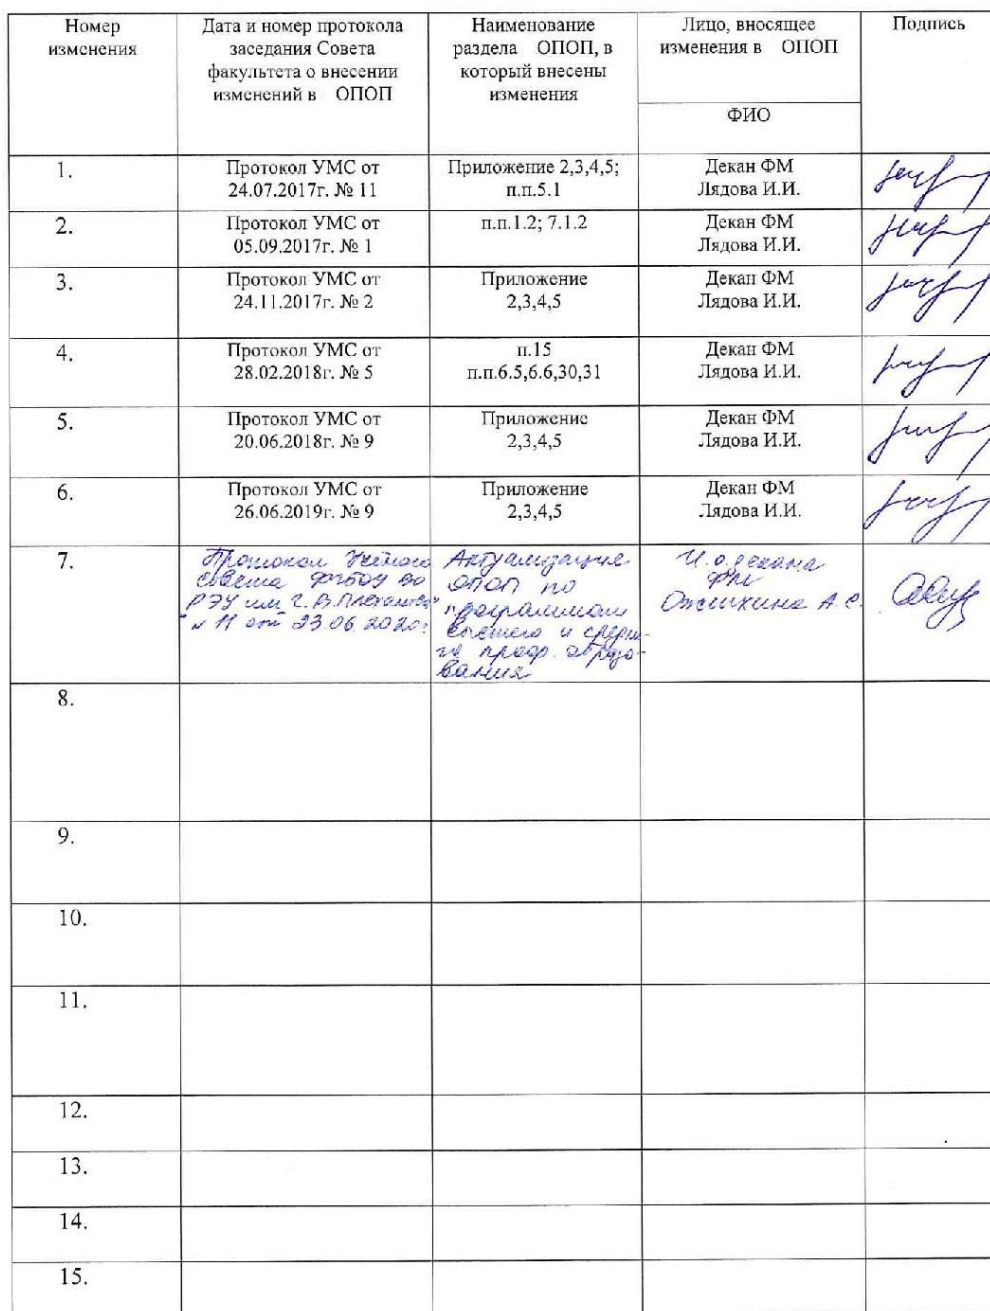 Номер
изменения
Дата и номер протокола
заседания Совета
факультета о внесении
изменений в ОПОП
Наименование
раздела ОПОП, в
который внесены
изменения
Лицо, вносящее
изменения в ОПОП
ФИО
Подпись
1.
Протокол УМС от
24.07.2017г. № 11
Приложение 2,3,4,5;
п.п.5.1
Декан ФМ
Лядова И.И.
2.
Протокол УМС от
05.09.2017г. № 1
п.п.1.2; 7.1.2
Декан ФМ
Лядова И.И.
3.
Протокол УМС от
24.11.2017г. № 2
Приложение
2,3,4,5
Декан ФМ
Лядова И.И.
4.
Протокол УМС от
28.02.2018г. № 5
п.15
п.п.6.5,6.6,30,31
Декан ФМ
Лядова И.И.
5.
Протокол УМС от
20.06.2018г. № 9
Приложение
2,3,4,5
Декан ФМ
Лядова И.И.
6.
Протокол УМС от
26.06.2019г. № 9
Приложение
2,3,4,5
Декан ФМ
Лядова И.И.
7.
Протокол Учёного
совета ФГБОУ ВО
"РЭУ им. Г.В.Плеханова"
№ 11 от 23.06.2020г.
Актуализация
ОПОП по
программам
высшего и средне-
го проф. образо-
вания
И.о.декана
ФМ
А.С.
8.
9.
10.
11.
12.
13.
14.
15.